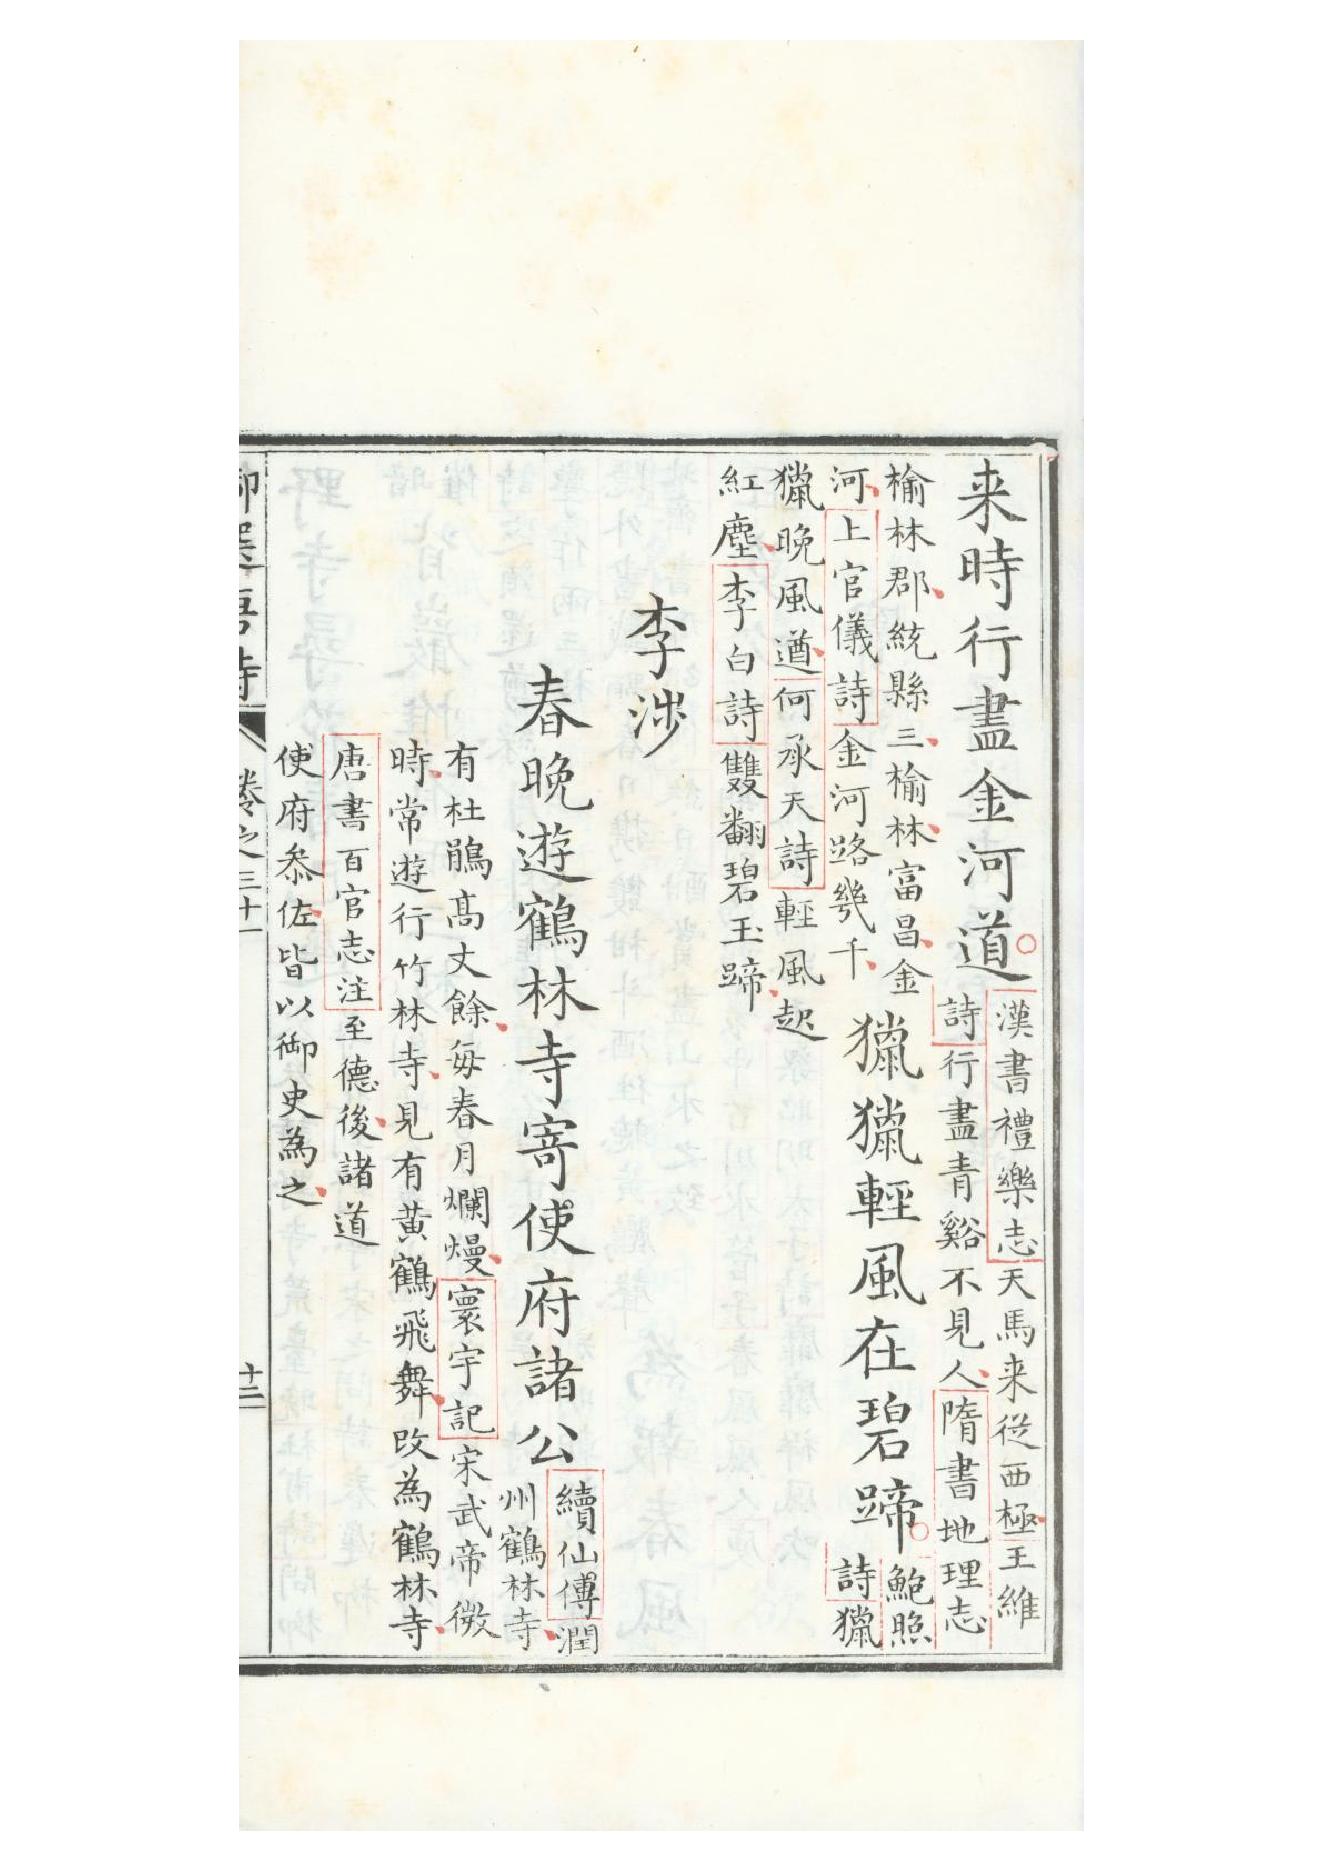 来時行盡金河道
漢書禮樂志天馬来從西極王維
詩行盡青谿不見人隋書地理志
榆林郡統縣三榆林富昌金
河上官儀詩金河路幾千
獵獵輕風在碧蹄
鮑照
詩獵
獵晚風遒何承天詩輕風起
紅塵李白詩雙翻碧玉蹄
李涉
春晚遊鶴林寺寄使府諸公
續仙傳潤
州鶴林寺
有杜鵑髙丈餘每春月爛熳寰宇記宋武帝微
時常遊行竹林寺見有黃鶴飛舞改為鶴林寺
唐書百官志注至德後諸道
使府叅佐皆以御史為之
御選唐詩
卷之三十一
十二